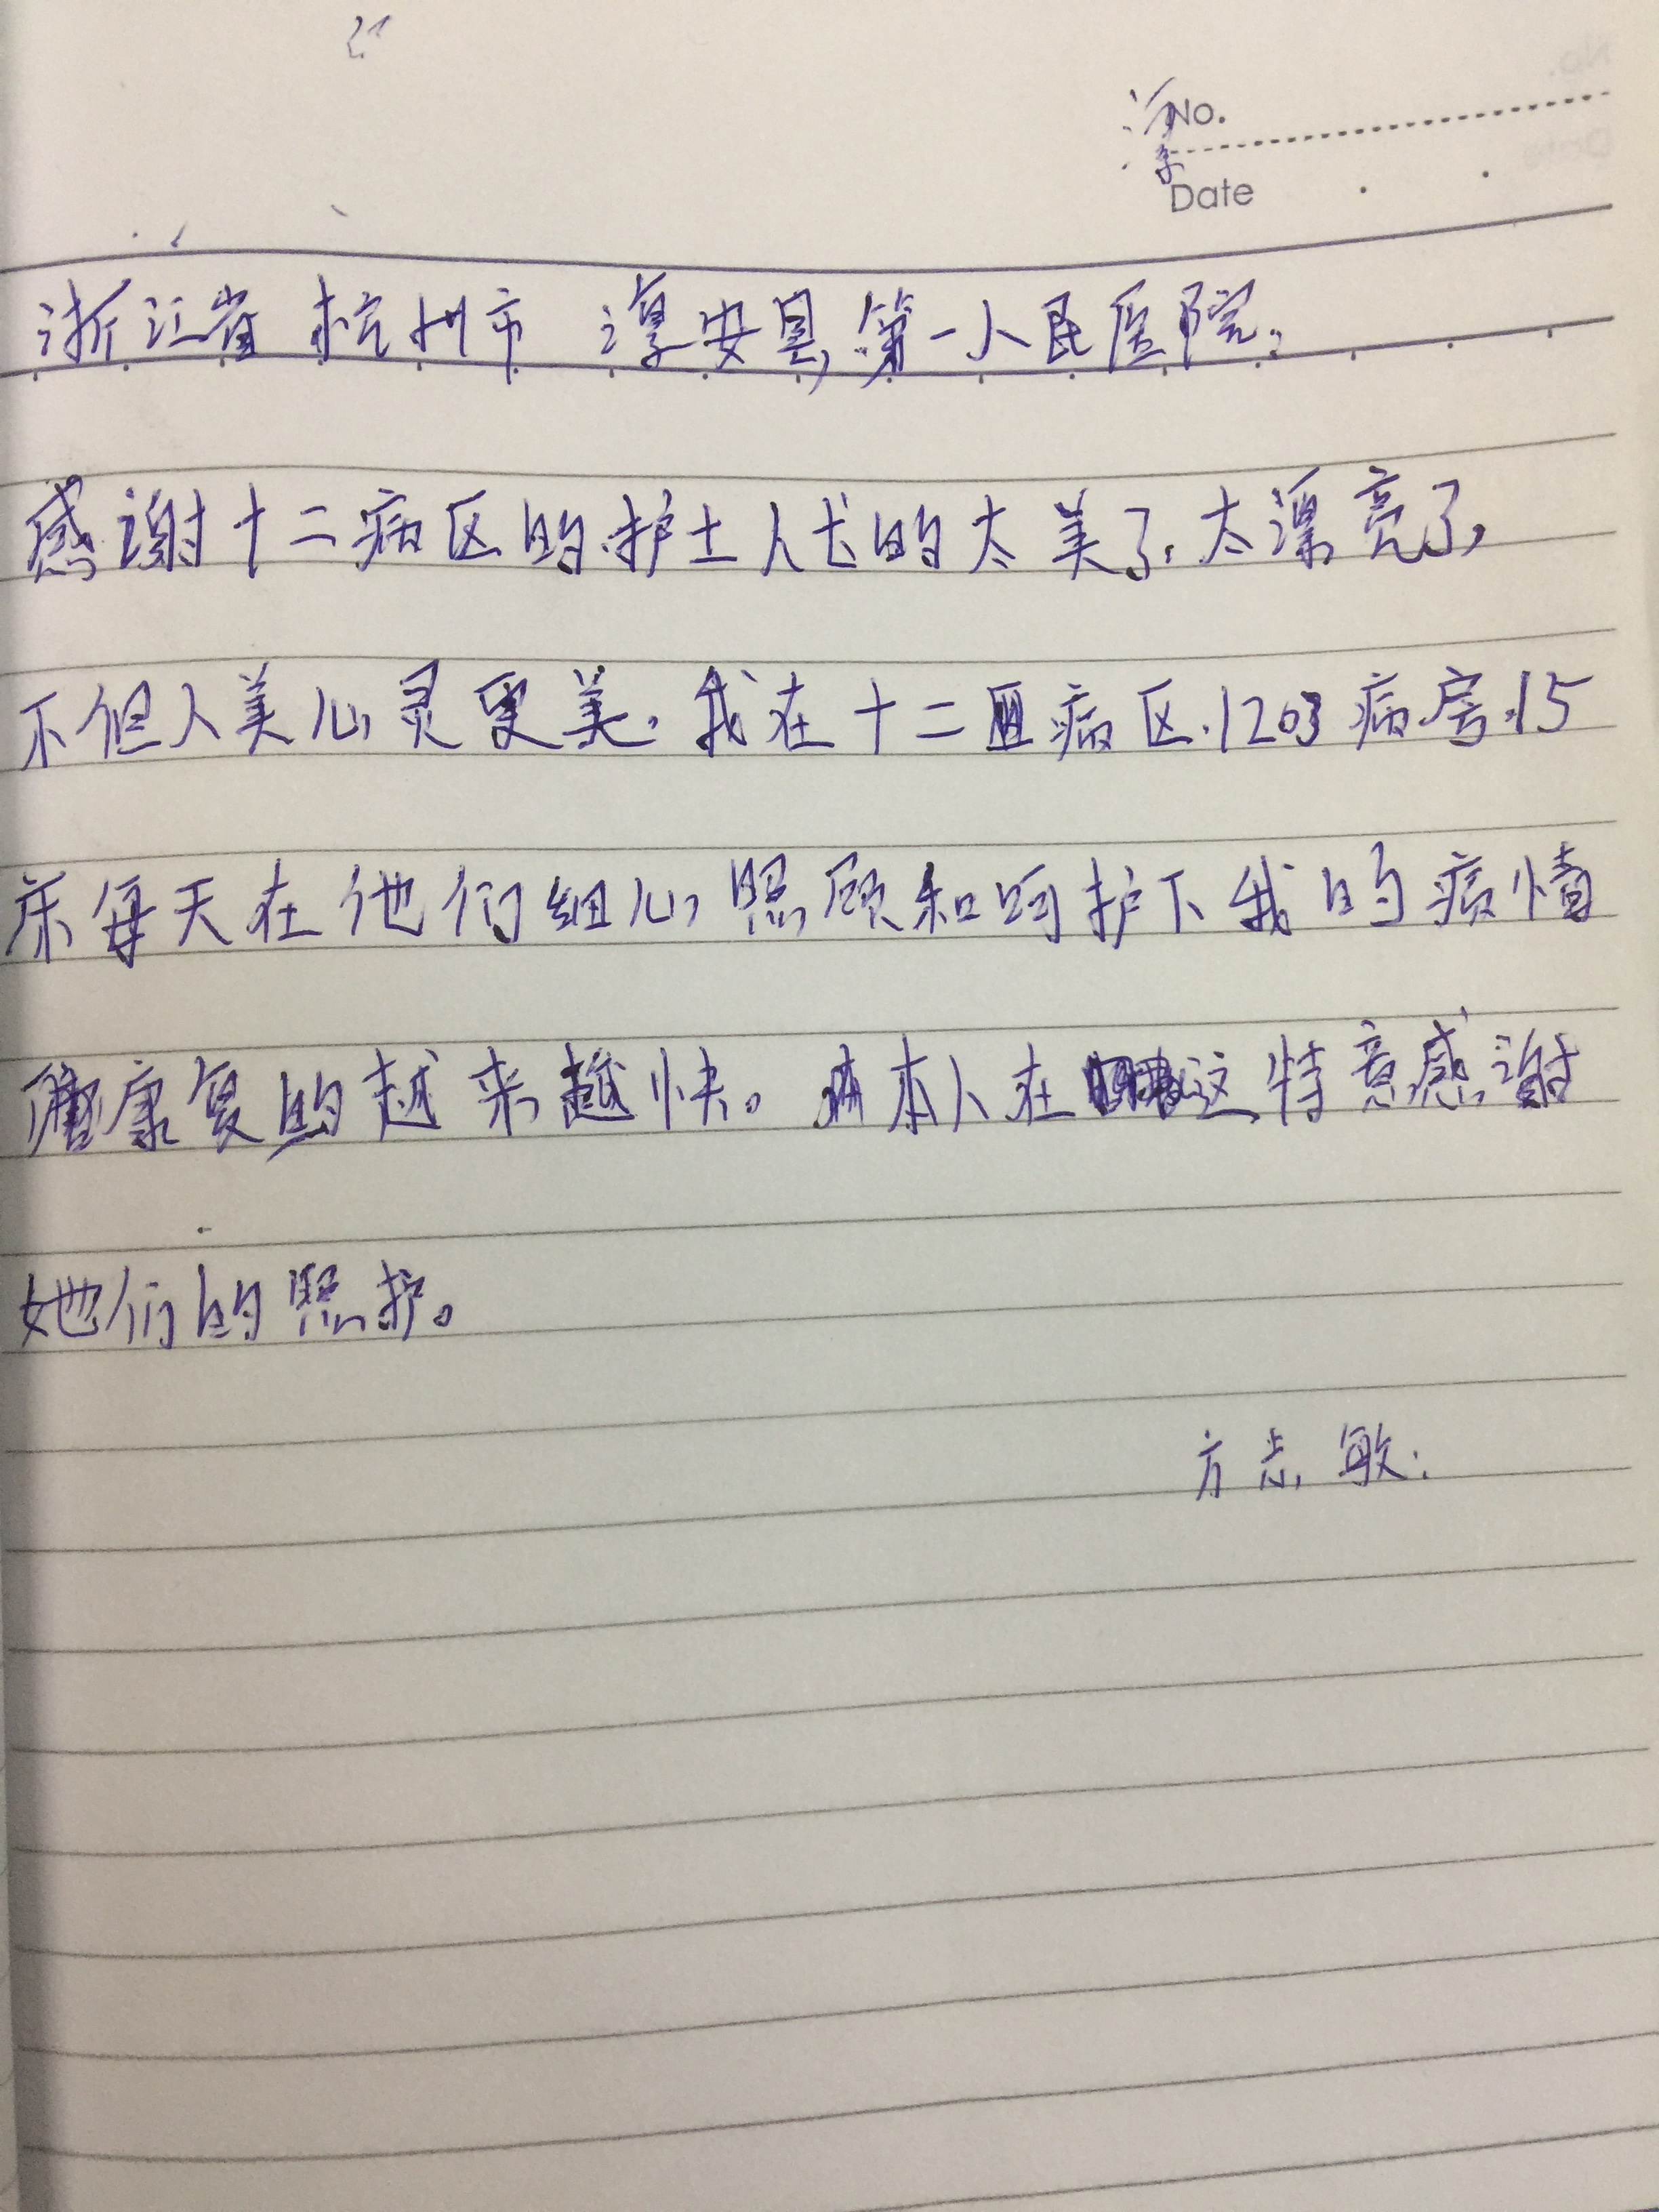 No.
Date
浙江省 杭州市 淳安县,第一人民医院:
感谢十二病区的护士人长的太美了.太漂亮了,
不但人美心灵更美.我在十二病区.1203病房.15
床每天在他们细心照顾和呵护下我的病情
康复的越来越快。本人在这特意感谢
她们的照护。
方志敏: